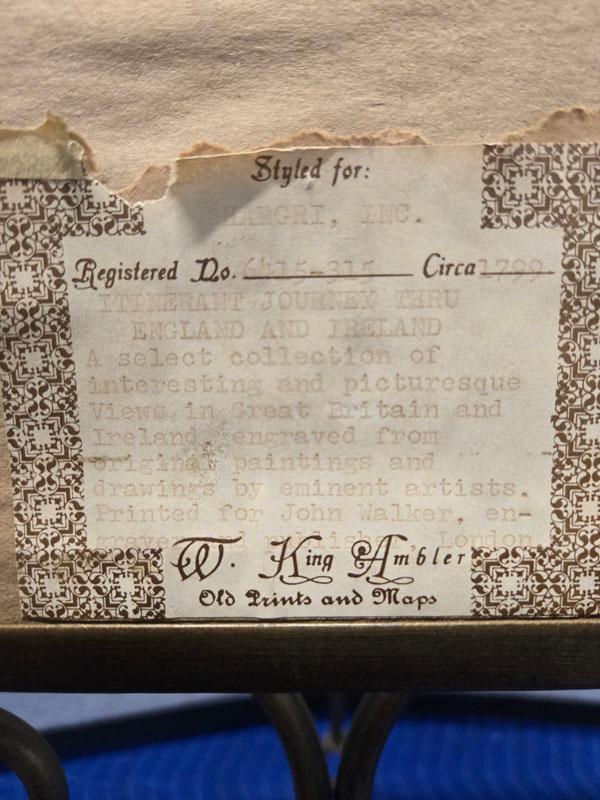 Styled for:
HARGRI, INC.
Registered No. 6415-315 Circa 1799
ITINERANT JOURNEY THRU
ENGLAND AND IRELAND
A select collection of
interesting and picturesque
Views in Great Britain and
Ireland, engraved from
original paintings and
drawings by eminent artists.
Printed for John Walker, en-
graver and publisher, London
W. King Ambler
Old Prints and Maps